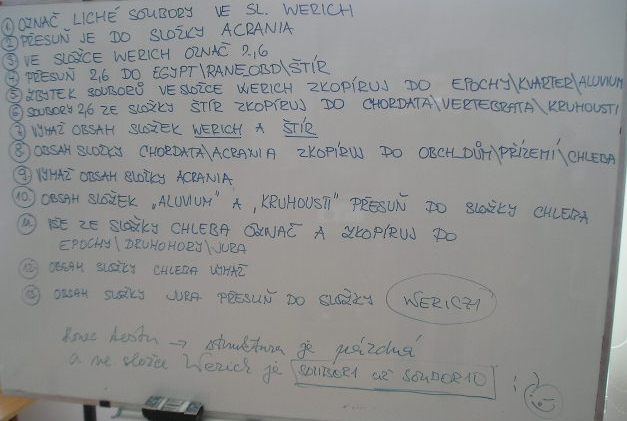 ① OZNAČ LICHÉ SOUBORY VE SL. WERICH
② PŘESUŇ JE DO SLOŽKY ACRANIA
③ VE SLOŽCE WERICH OZNAČ 2,6
④ PŘESUŇ 2,6 DO EGYPT\RANE_OBD\ŠTÍR
⑤ ZBYTEK SOUBORŮ VE SLOŽCE WERICH ZKOPÍRUJ DO EPOCHY\KVARTER\ALUVIUM
⑥ SOUBORY 2,6 ZE SLOŽKY ŠTÍR ZKOPÍRUJ DO CHORDATA\VERTEBRATA\KRUHOUSTI
⑦ VYMAŽ OBSAH SLOŽEK WERICH A ŠTÍR
⑧ OBSAH SLOŽKY CHORDATA\ACRANIA ZKOPÍRUJ DO OBCH_DŮM\PŘÍZEMÍ\CHLEBA
⑨ VYMAŽ OBSAH SLOŽKY ACRANIA
⑩ OBSAH SLOŽEK „ALUVIUM" A „KRUHOUSTI" PŘESUŇ DO SLOŽKY CHLEBA
⑪ VŠE ZE SLOŽKY CHLEBA OZNAČ A ZKOPÍRUJ DO
EPOCHY\DRUHOHORY\JURA
⑫ OBSAH SLOŽKY CHLEBA VYMAŽ
⑬ OBSAH SLOŽKY JURA PŘESUŇ DO SLOŽKY WERICH
Konec testu → struktura je prázdná
a ve složce Werich je SOUBOR1 až SOUBOR10 !